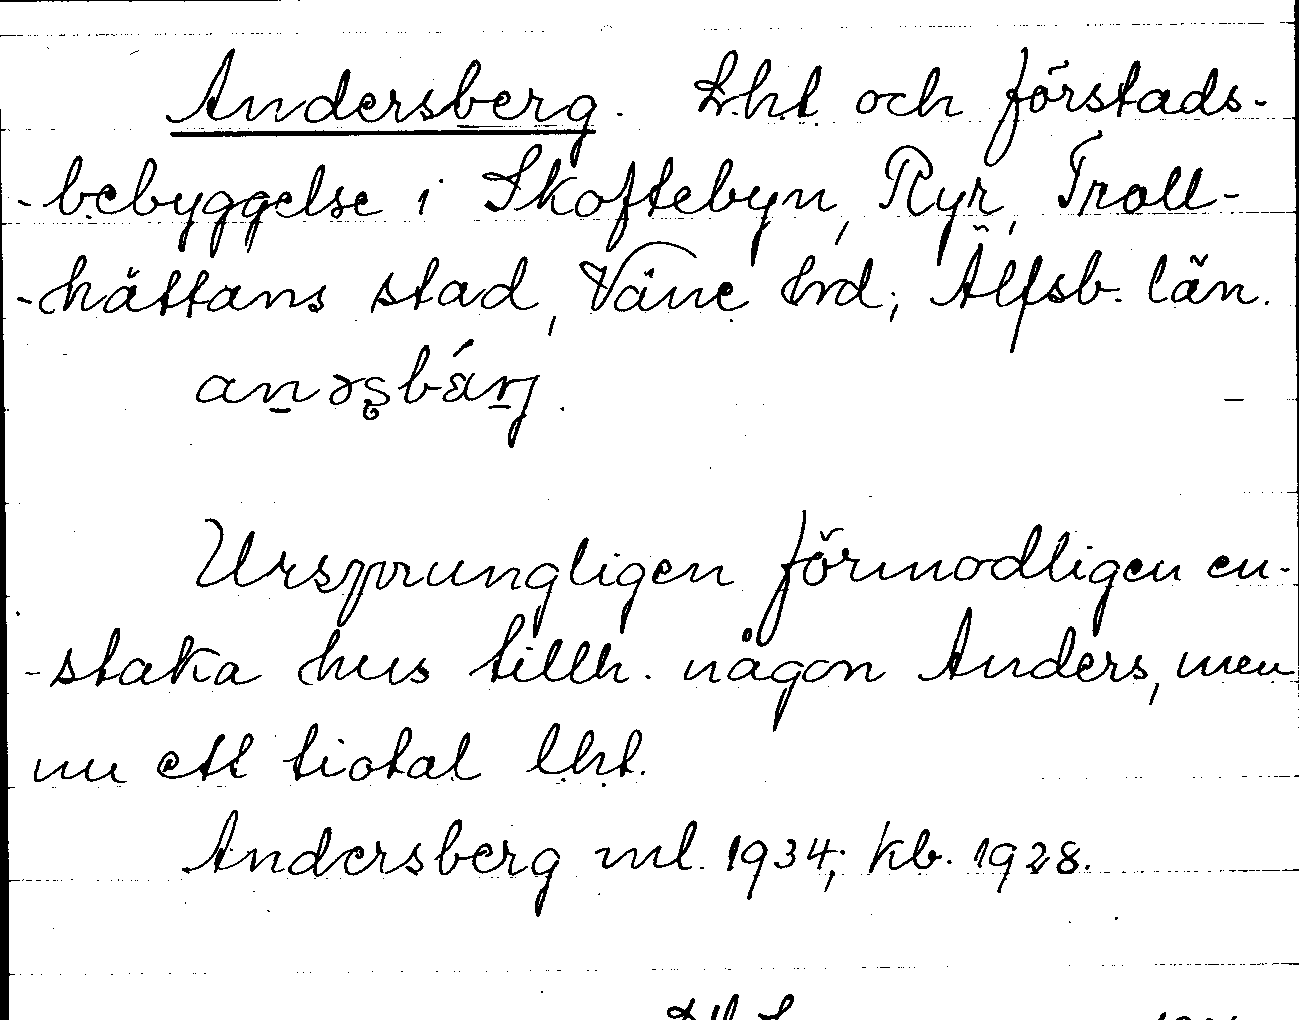 Andersberg. Lht och förstads-
-bebyggelse i Skoftebyn, Ryr, Troll-
-hättans stad, Väne hrd, Älfsb. län.
an̠əʂbä́rj.
Ursprungligen förmodligen en-
-staka hus tillh. någon Anders, men
nu ett tiotal lht.
Andersberg ml. 1934; kb. 1928.